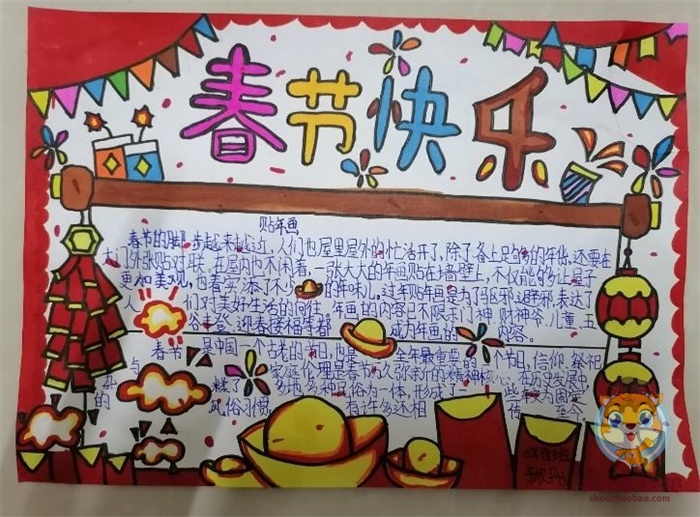 春节快乐
贴年画
春节的脚步越来越近,人们也屋里屋外的忙活开了,除了备上足够的年货,还要在
大门外张贴对联,在屋内也不闲着,一张大大的年画贴在墙壁上,不仅能够让屋子
更加美观,也着实添了不少的年味儿,过年贴年画是为了驱邪避邪,表达了
人们对美好生活的向往,年画的内容已不限于门神 财神爷、儿童、五
谷丰登、迎春接福等都成为年画的内容。
春节是中国一个古老的节日,也是全年最重要的一个节日,信仰 祭祀
与家庭伦理是春节历久弥新的精神核心,在历史发展中
杂糅了多地多种民俗为一体,形成了一些较为固定
的风俗习惯 有许多还相传至今
shouchaobao.com